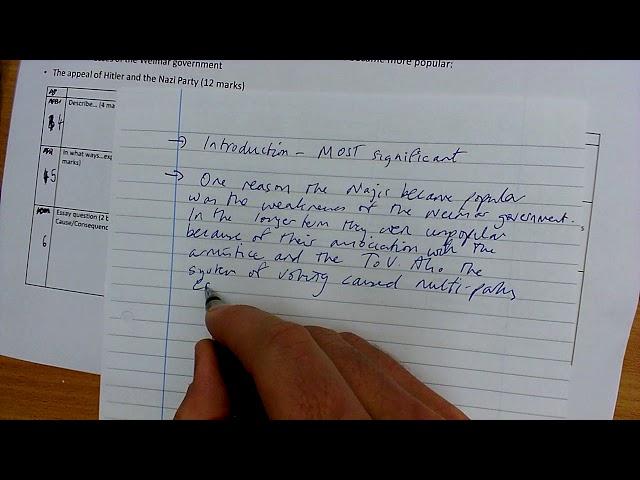 sses of the Weimar government
came more popular:
• The appeal of Hitler and the Nazi Party (12 marks)
Describe... (4 ma
4
In what ways...exp
marks)
5
Essay question (2 b
Cause/Consequenc
6
→ Introduction – MOST significant
→ One reason the Nazis became popular
was the weaknesses of the Weimar government.
In the longer term they were unpopular
because of their association with the
armistice and the ToV. Also the
system of voting caused multi-party